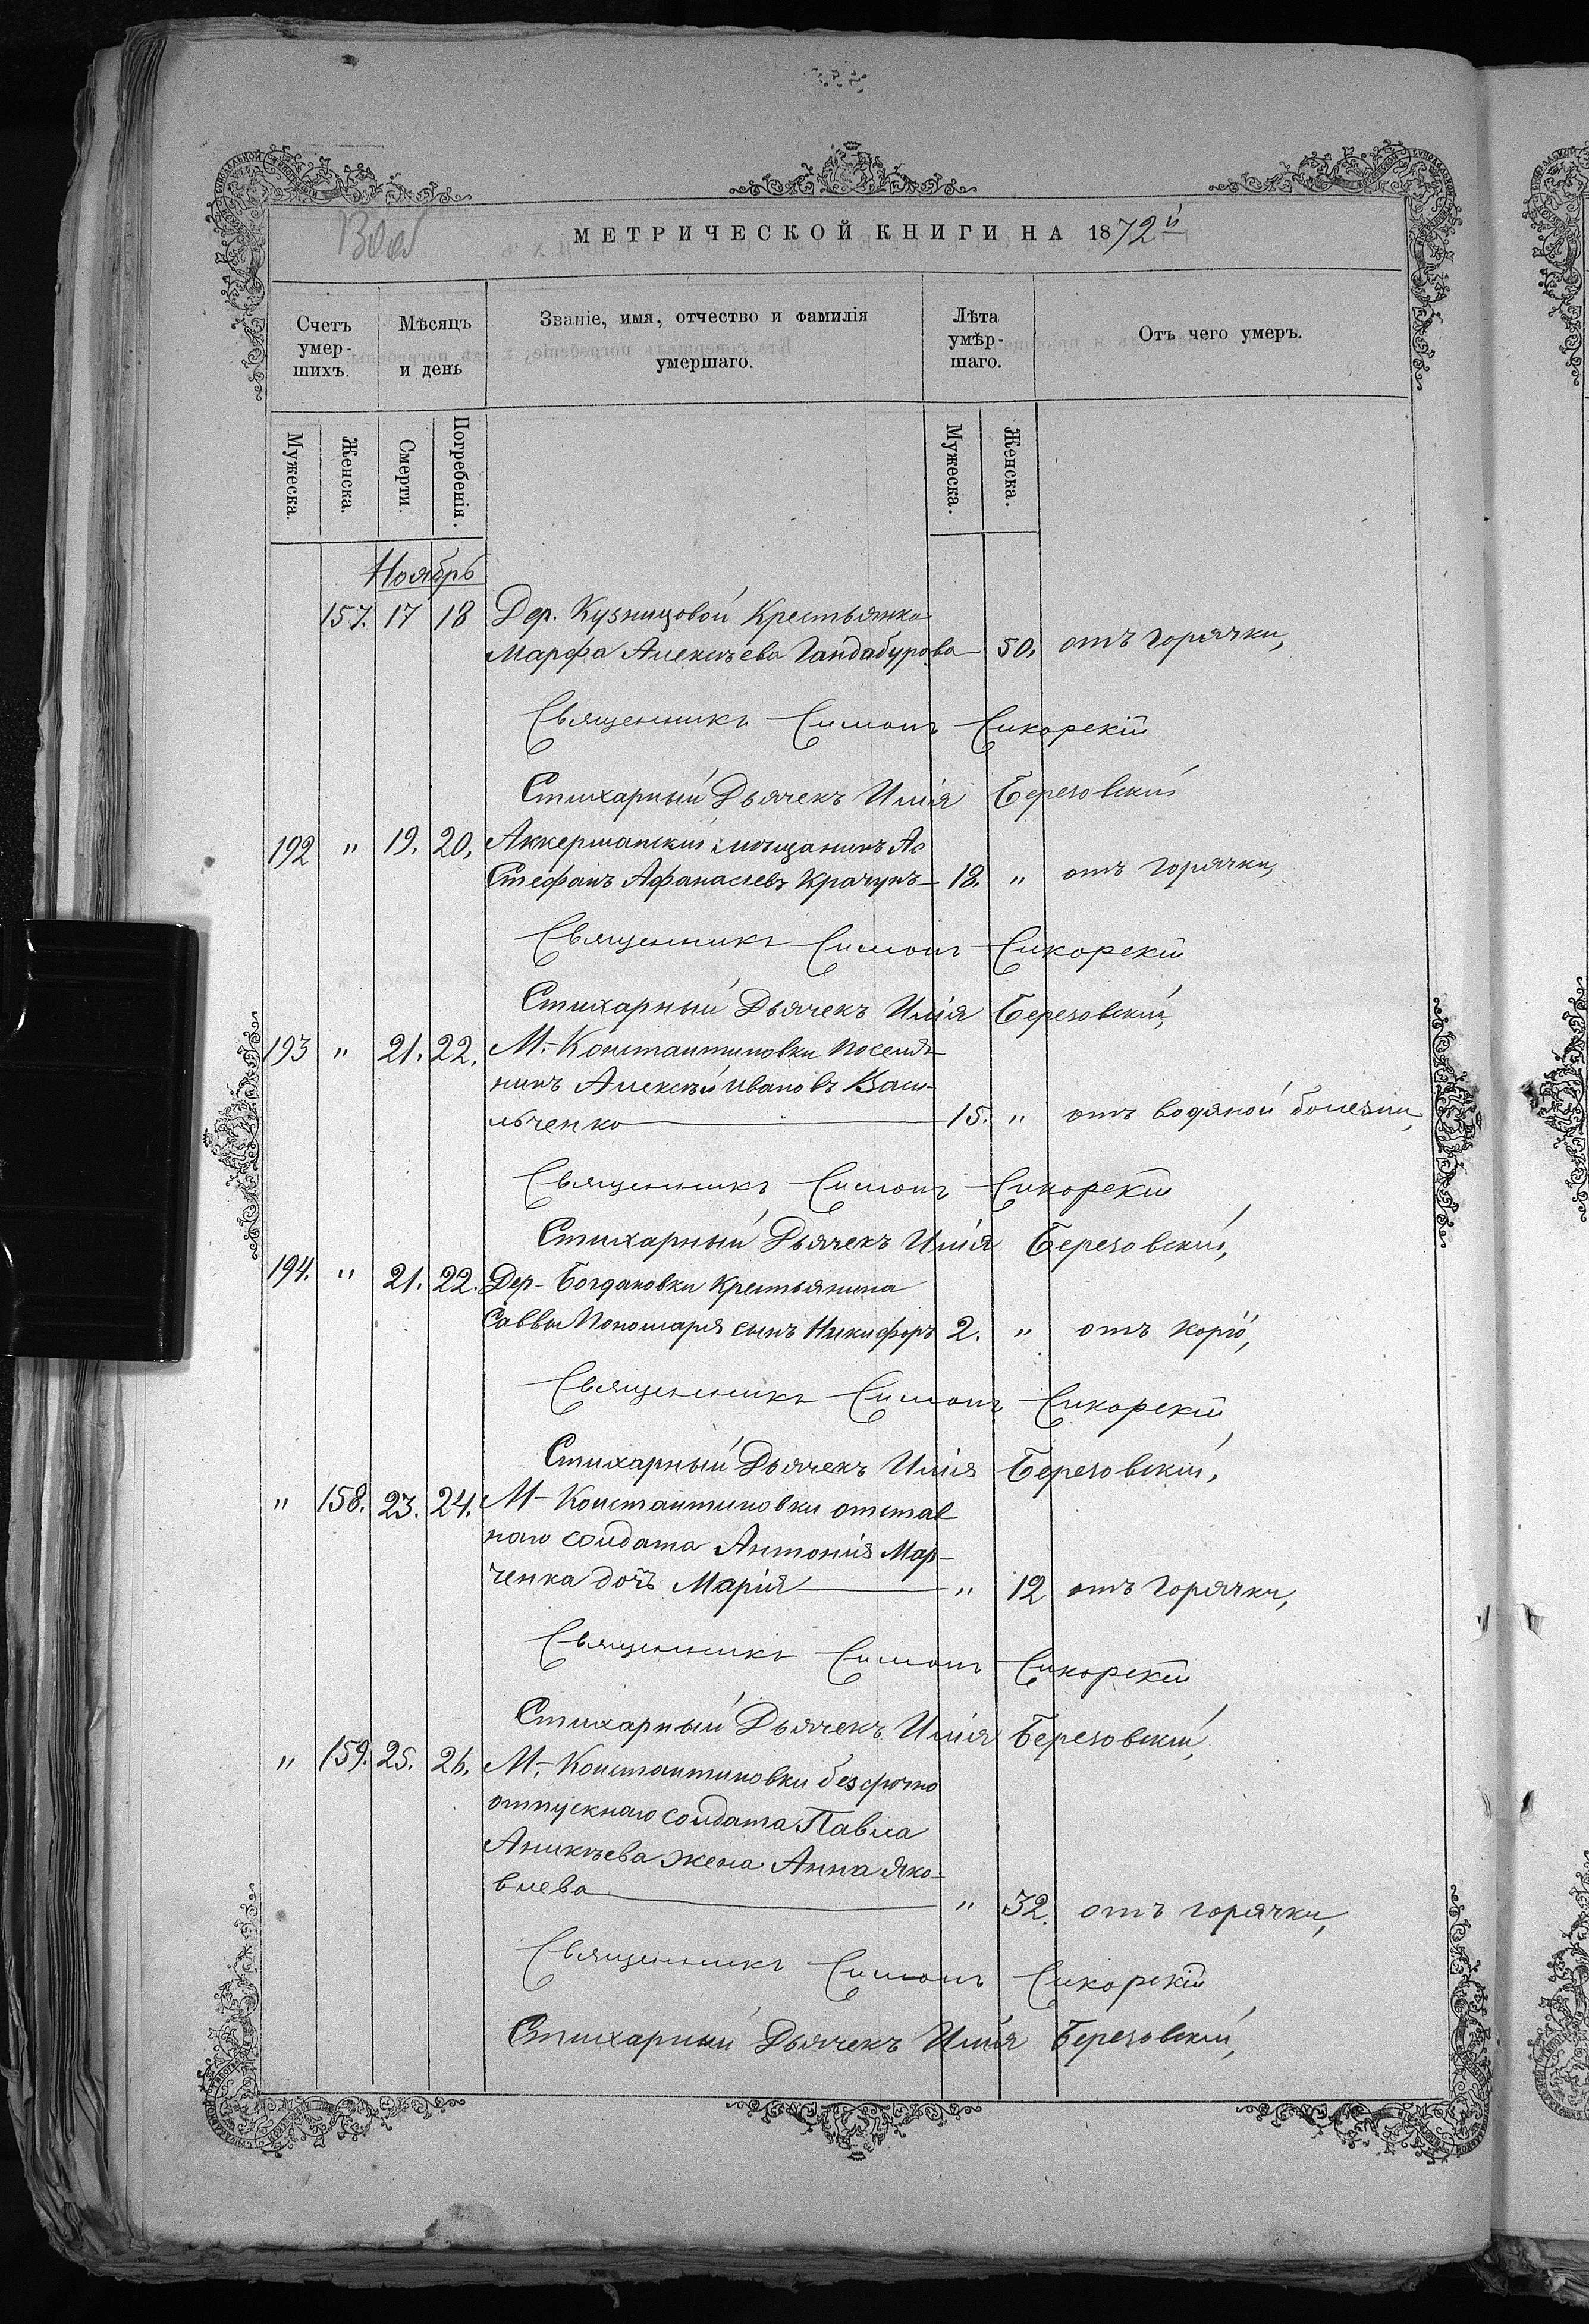 МЕТРИЧЕСКОЙ КНИГИ НА 1872й
Счетъ умер-шихъ.
Мѣсяцъ и день
Званіе, имя, отчество и фамилія умершаго.
Лѣта умѣр-шаго.
Отъ чего умеръ.
Мужеска.
Женска.
Смерти.
Погребенія.
Мужеска.
Женска.
Ноябрь
157. 17 18 Дер. Кузницовой Крестьянка
Марфа Алексѣева Гандабурова 50. отъ горячки,
Священникъ Симонъ Сикорскій
Стихарный Дьячекъ Илія Березовскій
192 " 19. 20. Аккерманскій мѣщанинъ Ас
Стефанъ Афанасіевъ Крачунъ 18. " отъ горячки,
Священникъ Симонъ Сикорскій
Стихарный Дьячекъ Илія Березовскій,
193 " 21. 22. М. Константиновки поселя-
нинъ Алексѣй Ивановъ Васи-
льченко 15. " отъ водяной болезни,
Священникъ Симонъ Сикорскій
Стихарный Дьячекъ Илія Березовскій,
194. " 21. 22. Дер. Богдановки Крестьянина
Саввы Пономаря сынъ Никифоръ 2. " отъ корю,
Священникъ Симонъ Сикорскій
Стихарный Дьячекъ Илія Березовскій,
" 158. 23. 24. М. Константиновки отстав
наго солдата Антонія Мар-
ченка дочь Марія " 12 отъ горячки,
Священникъ Симонъ Сикорскій
Стихарный Дьячекъ Илія Березовскій,
" 159. 25. 26. М. Константиновки безсрочно
отпускнаго солдата Павла
Аникѣева жена Анна Яко-
влева " 32. отъ горячки,
Священникъ Симонъ Сикорскій
Стихарный Дьячекъ Илія Березовскій,